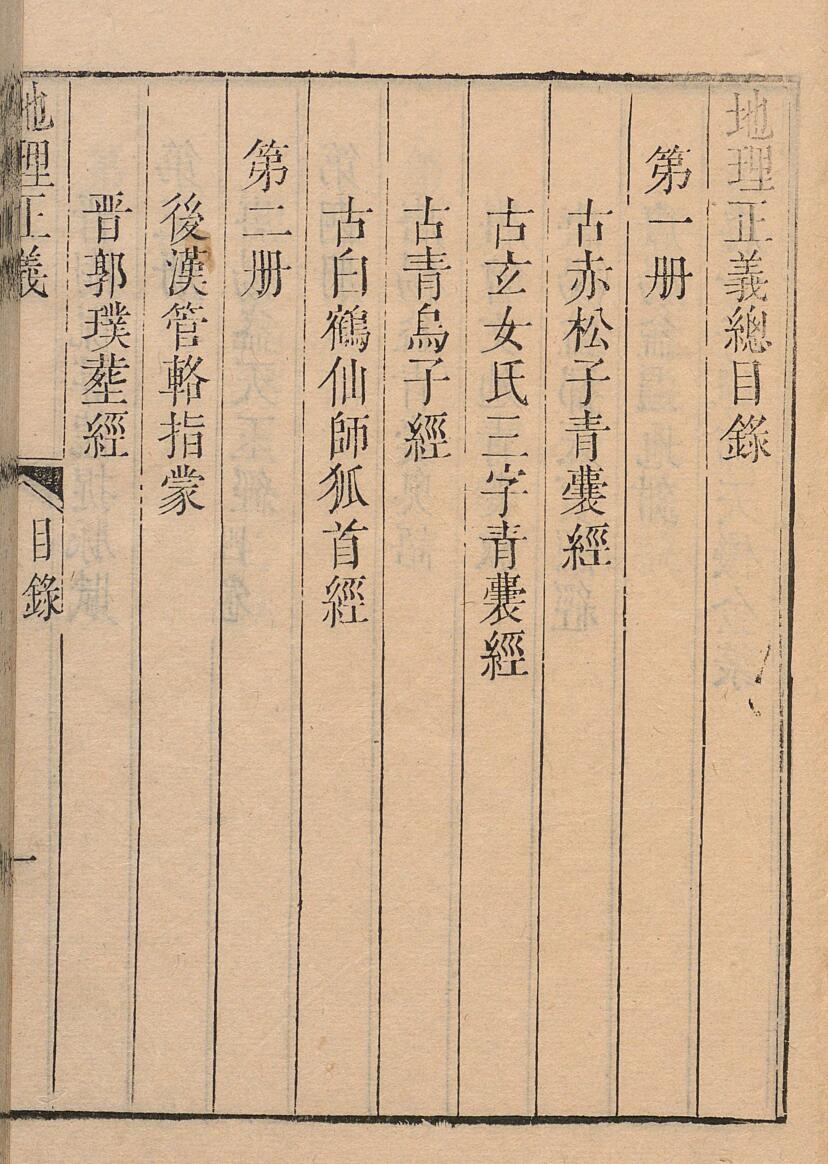 地理正義總目錄
第一册
古赤松子青囊經
古玄女氏三字青囊經
古青烏子經
古白鶴仙師狐首經
第二册
後漢管輅指蒙
晋郭璞塟經
地理正義 目錄 一